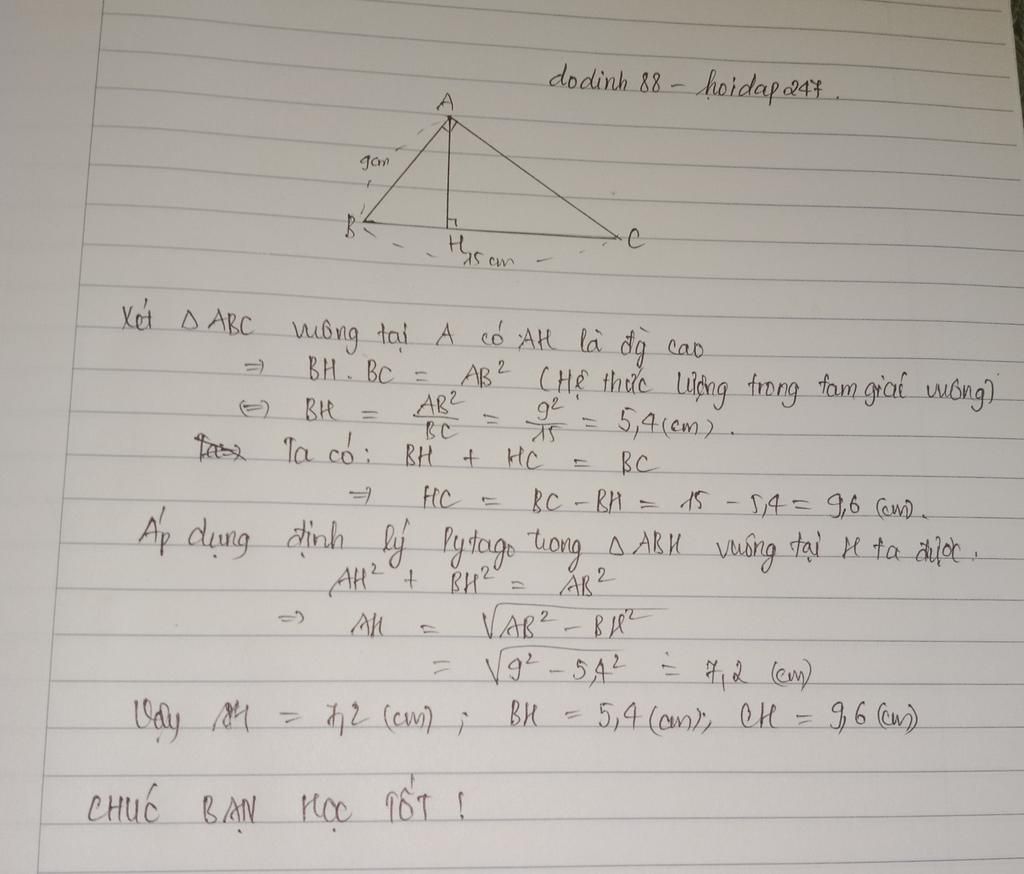 dodinh 88 - hoidap247.
A
9cm
B
H
C
15 cm
Xét Δ ABC vuông tại A có AH là đg cao
=> BH . BC = AB² (Hệ thức lượng trong tam giác vuông)
<=> BH = AB²/BC = 9²/15 = 5,4 (cm).
Ta có: BH + HC = BC
=> HC = BC - BH = 15 - 5,4 = 9,6 (cm).
Áp dụng định lý Pytago trong Δ ABH vuông tại H ta được.
AH² + BH² = AB²
=> AH = √AB² - BH²
= √9² - 5,4² = 7,2 (cm)
Vậy AH = 7,2 (cm); BH = 5,4 (cm); CH = 9,6 (cm)
CHÚC BẠN HỌC TỐT !